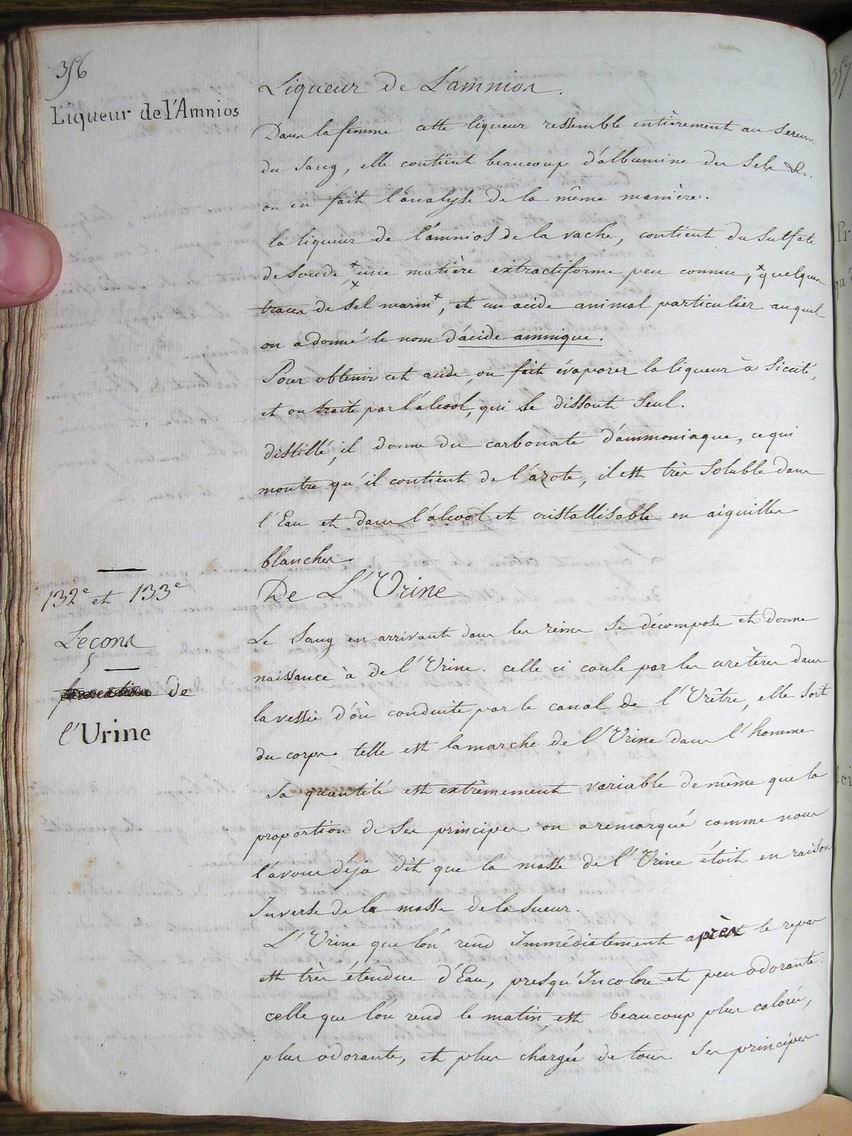 356
Liqueur de l'Amnios
Liqueur de L'amnios.
Dans la femme cette liqueur ressemble entièrement au Serum
du Sang, elle contient beaucoup d'albumine des Sels &c.
on en fait l'analyse de la même manière.
la liqueur de l'amnios de la vache, contient du Sulfate
de Soude + une matière extractiforme peu connue, + quelques
traces de Sel marin +, et un acide animal particulier auquel
on a donné le nom d'acide amnique.
Pour obtenir cet acide, on fait évaporer la liqueur à Siccité,
et on traite par l'alcool, qui le dissout Seul.
distillé, il donne du carbonate d'ammoniaque, ce qui
montre qu'il contient de l'azote, il est très Soluble dans
l'Eau et dans l'alcool et cristallisable en aiguilles
blanches.
132e et 133e
Leçons
de
l'Urine
De L'Urine
Le Sang en arrivant dans les reins Se décompose et donne
naissance à de l'Urine. celle ci coule par les uretères dans
la vessie d'où conduite par le canal de l'Urètre, elle Sort
du corps telle est la marche de l'Urine dans l'homme
Sa quantité est extrêmement variable de même que la
proportion de Ses principes on a remarqué comme nous
l'avons déjà dit que la masse de l'Urine étoit en raison
Inverse de la masse de la Sueur.
L'Urine que l'on rend Immédiatement après le repas
est très étendue d'Eau, presqu'Incolore et peu odorante.
celle que l'on rend le matin est beaucoup plus colorée,
plus odorante, et plus chargée de tous Ses principes